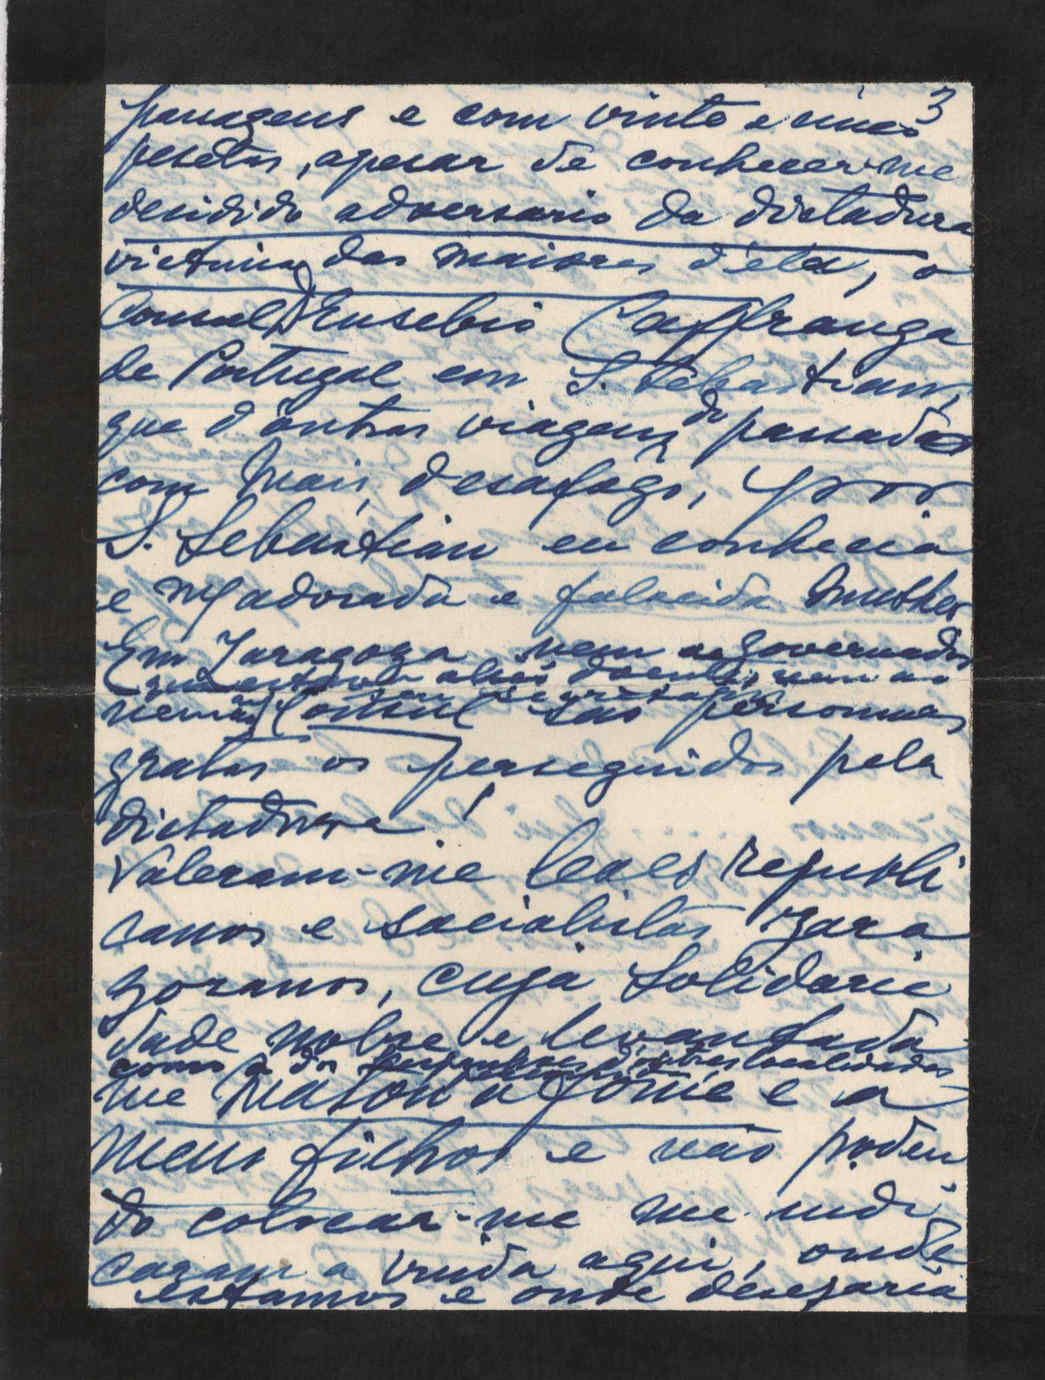 3
passagens e com vinte e cinco
pesetas, apesar de conhecer-me
decidido adversario da dictadura
victima das maiores d'ela, o
Consul D. Eusebio Caffranga
de Portugal em S. Sebastian,
que d'outras viagens de passado
com mais desafogo, por
S. Sebastian eu conhecia
e m.ª adorada e falecida mulher
Em Zaragoza nem ao governador
(que estava aliás doente), nem ao
nem Consul são personnas
gratas os perseguidos pela
dictadura!
Valeram-me leaes republi
canos e socialistas zara
gozanos, cuja solidarie
dade nobre e levantada
como a de d'outras localidades
me matou a fome e a
meus filhos e não poden
do colocar-me me indi
caram a vinda aqui, onde
estamos e onde desejaria